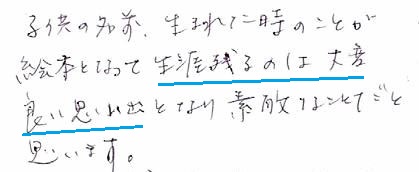 子供の名前、生まれた時のことが
絵本となって生涯残るのは大変
良い思い出となり素敵なことだと
思います。